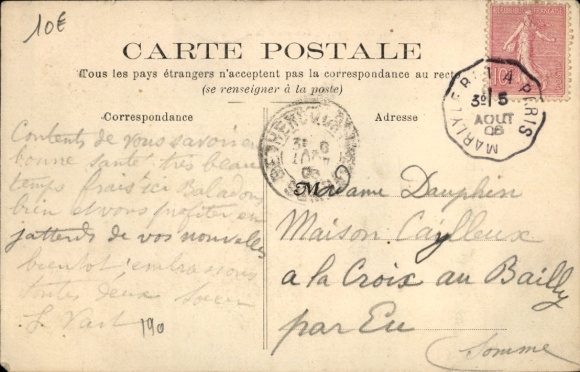 10€
CARTE POSTALE
Tous les pays étrangers n'acceptent pas la correspondance au recto
(se renseigner à la poste)
Correspondance
Adresse
Contents de vous savoir en
bonne santé très beau
temps frais ici Baladons
bien et vous profiter en
j'attends de vos nouvelles
bientôt j'embrassons
toutes deux
L. Vast
190
MARLY A PARIS
3E 15
AOUT
06
Madame Dauphin
Maison Cailleux
a la Croix au Bailly
par Eu
Somme